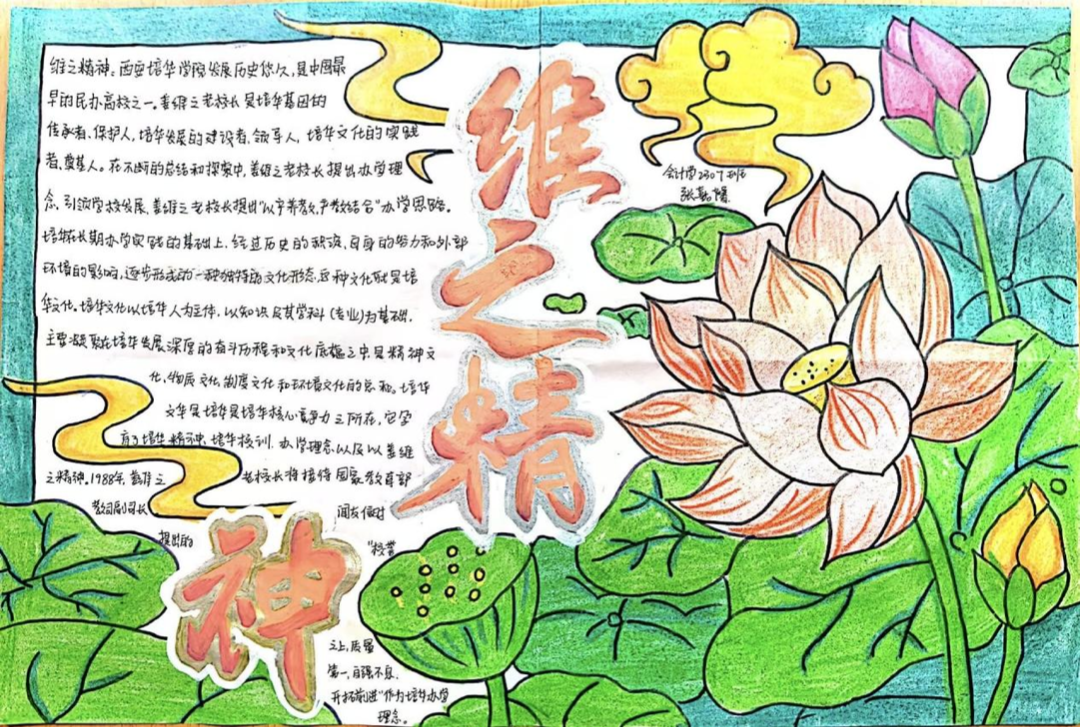 维之精神
会计本2307班
维之精神。西安培华学院发展历史悠久,是中国最
早的民办高校之一。姜维之老校长是培华基因的
传承者、保护人,培华发展的建设者、领导人,培华文化的实践
者、奠基人。在不断的总结和探索中,姜维之老校长提出办学理
念,引领学校发展,姜维之老校长提出"以产养教,产教结合"办学思路。
培华在长期办学实践的基础上,经过历史的积淀,自身的努力和外部
环境的影响,逐步形成的一种独特的文化形态,这种文化就是培
华文化。培华文化以培华人为主体,以知识及其学科(专业)为基础,
主要凝聚在培华发展深厚的奋斗历程和文化底蕴之中是精神文
化,物质文化,制度文化和环境文化的总和。培华
文华是培华是培华核心竞争力之所在,它孕
育了培华精神,培华校训,办学理念以及以姜维
之精神。1988年,姜维之老校长将接待国家教育部
教司副司长闻友信时
提出的"校誉
之上,质量
第一,自强不息,
开拓前进"作为培华办学
理念。